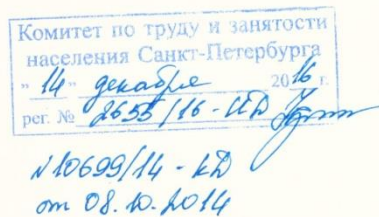 Комитет по труду и занятости
населения Санкт-Петербурга
"14" декабря 2016 г.
рег. № 2655/16-КД
№10699/14-КД
от 08.10.2014